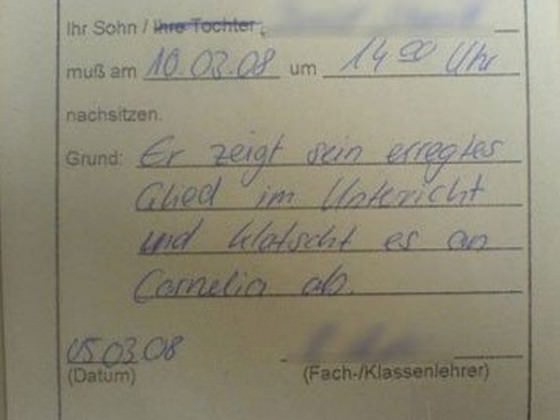 Ihr Sohn / Ihre Tochter,
muß am 10.03.08 um 14 00 Uhr
nachsitzen.
Grund: Er zeigt sein erregtes
Glied im Unterricht
und klatscht es an
Cornelia ab.
05.03.08
(Datum) (Fach-/Klassenlehrer)